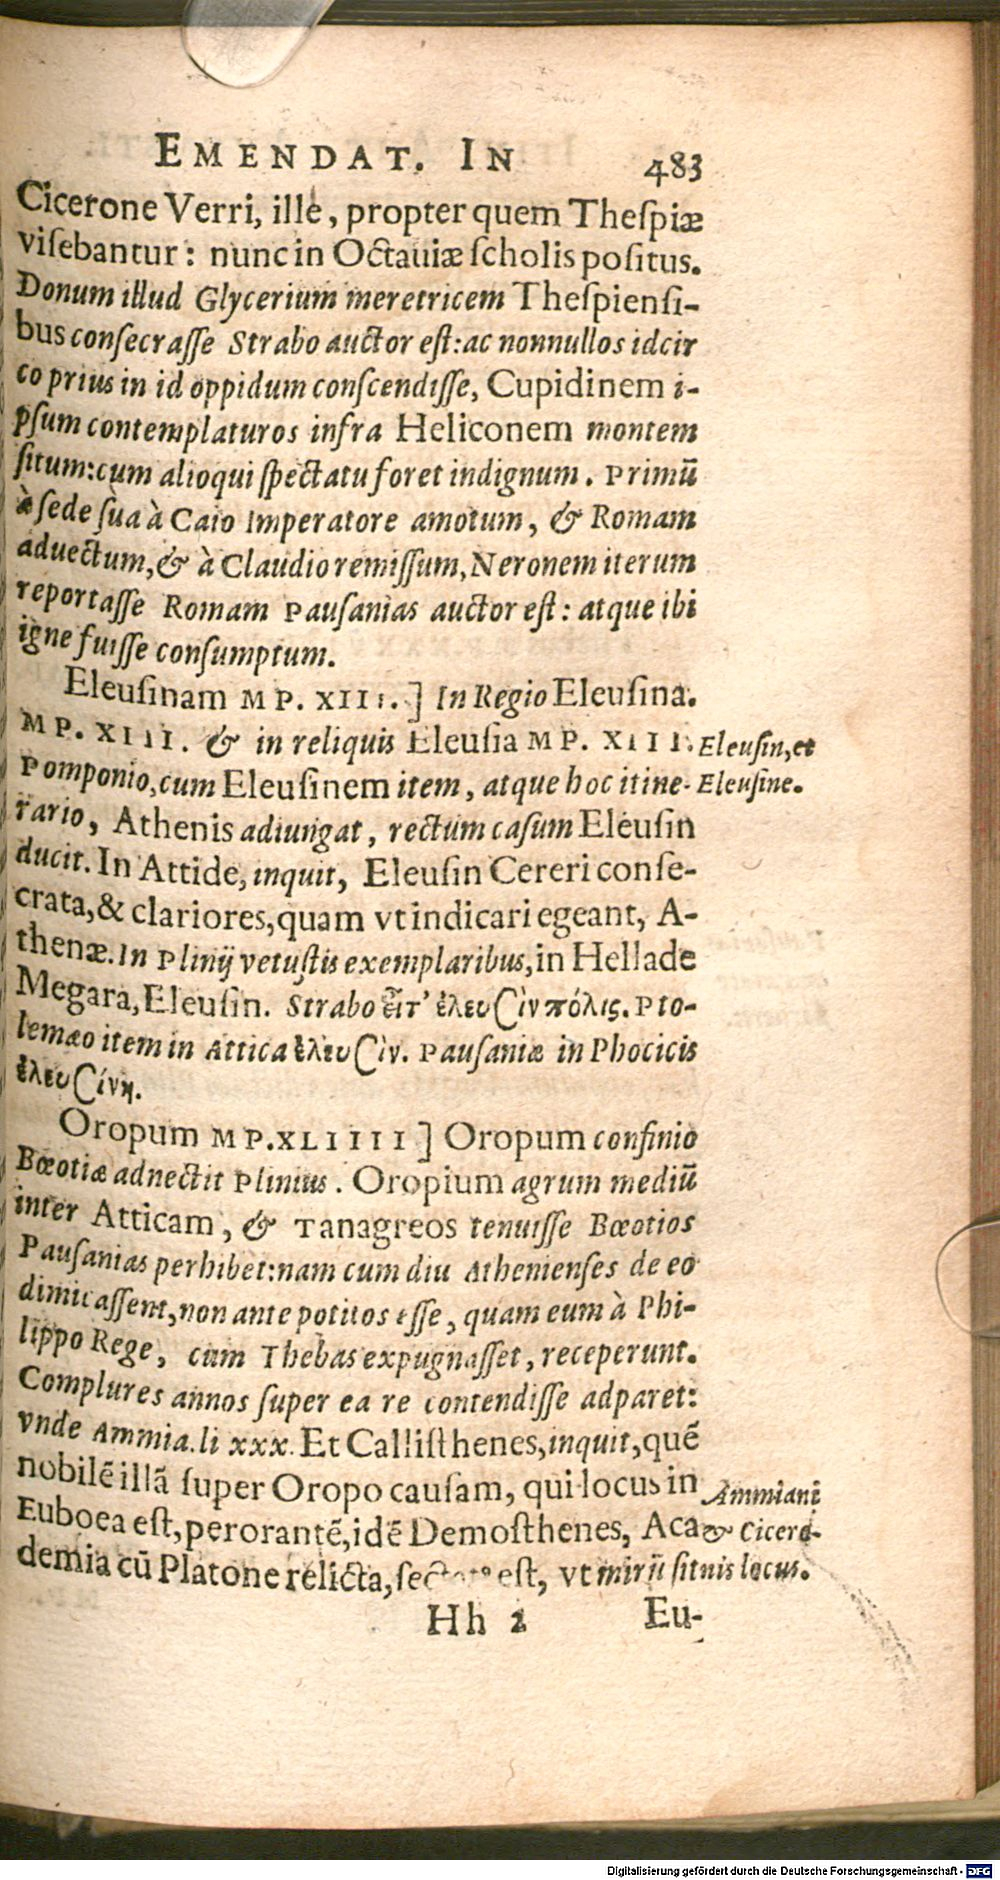 EMENDAT. IN 483
Cicerone Verri, ille, propter quem Thespiæ
visebantur: nunc in Octauiæ scholis positus.
Donum illud Glycerium meretricem Thespiensi-
bus consecrasse Strabo auctor est: ac nonnullos idcir
co prius in id oppidum conscendisse, Cupidinem i-
psum contemplaturos infra Heliconem montem
situm: cum alioqui spectatu foret indignum. Primũ
à sede sua à Caio Imperatore amotum, & Romam
aduectum, & à Claudio remissum, Neronem iterum
reportasse Romam Pausanias auctor est: atque ibi
igne fuisse consumptum.
Eleusinam MP. XIII.] In Regio Eleusina.
MP. XIII. & in reliquis Eleusia MP. XIII. Eleusin, et
Pomponio, cum Eleusinem item, atque hoc itine- Eleusine.
rario, Athenis adiungat, rectum casum Eleusin
ducit. In Attide, inquit, Eleusin Cereri conse-
crata, & clariores, quam vt indicari egeant, A-
thenæ. In Plinij vetustis exemplaribus, in Hellade
Megara, Eleusin. Strabo εἶτ' ἐλευσὶν πόλις. Pto-
lemæo item in Attica ἐλευσὶν. Pausaniæ in Phocicis
ἐλευσίνη.
Oropum MP.XLIIII] Oropum confinio
Bœotiæ adnectit Plinius. Oropium agrum mediũ
inter Atticam, & Tanagreos tenuisse Bœotios
Pausanias perhibet: nam cum diu Athenienses de eo
dimicassent, non ante potitos esse, quam eum à Phi-
lippo Rege, cum Thebas expugnasset, receperunt.
Complures annos super ea re contendisse adparet:
vnde Ammia. li xxx. Et Callisthenes, inquit, quē
nobilē illā super Oropo causam, qui locus in Ammiani
Euboea est, perorantē, idē Demosthenes, Aca- & Cicero-
demia cū Platone relicta, est, vt mirũ sit nis locus.
Hh 2 Eu-
Digitalisierung gefördert durch die Deutsche Forschungsgemeinschaft - DFG